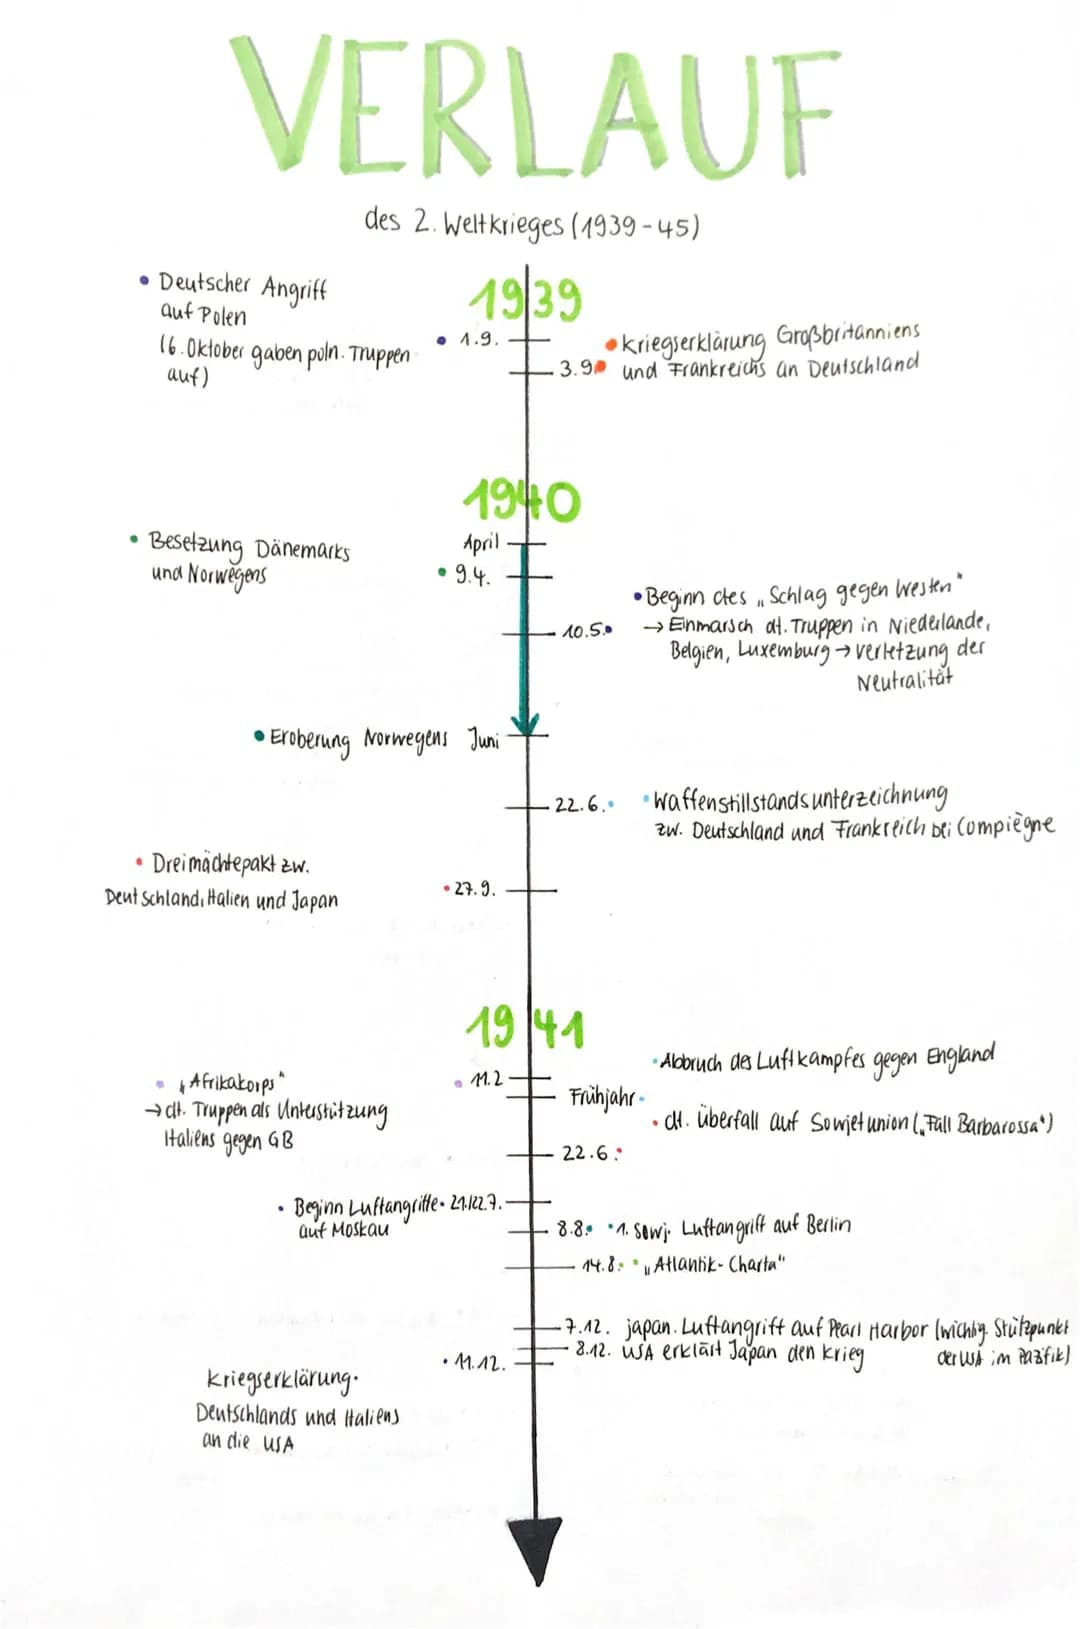 VERLAUF
des 2. Weltkrieges (1939-45)
1939
• Deutscher Angriff
auf Polen
(6. Oktober gaben poln. Truppen
auf)
• 1.9.
3.9.
• Kriegserklärung Großbritanniens
und Frankreichs an Deutschland
1940
April
• Besetzung Dänemarks
und Norwegens
• 9.4.
10.5.•
• Beginn des „Schlag gegen Westen"
→ Einmarsch dt. Truppen in Niederlande,
Belgien, Luxemburg → Verletzung der
Neutralität
• Eroberung Norwegens Juni
22.6.•
• Waffenstillstandsunterzeichnung
zw. Deutschland und Frankreich bei Compiègne
• Dreimächtepakt zw.
Deutschland, Italien und Japan
• 27.9.
1941
• „Afrikakorps"
→ dt. Truppen als Unterstützung
Italiens gegen GB
• 11.2
• Abbruch des Luftkampfes gegen England
Frühjahr•
• dt. Überfall auf Sowjetunion („Fall Barbarossa")
22.6.•
• Beginn Luftangriffe • 21./22.7.
auf Moskau
8.8.• • 1. sowj. Luftangriff auf Berlin
14.8.• • „Atlantik-Charta"
7.12. japan. Luftangriff auf Pearl Harbor (wichtig. Stützpunkt
der USA im Pazifik)
8.12. USA erklärt Japan den Krieg
• 11.12.
Kriegserklärung•
Deutschlands und Italiens
an die USA